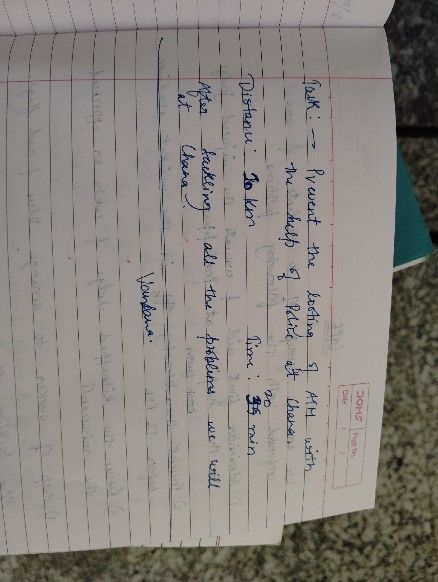 DOMS
Page No.
Date / /
Task: → Prevent the looting of MM with
the help of Police at Chana.
Distance: 20 km Time: 20 min
After tackling all the problems we will
at Chana
Vandana.